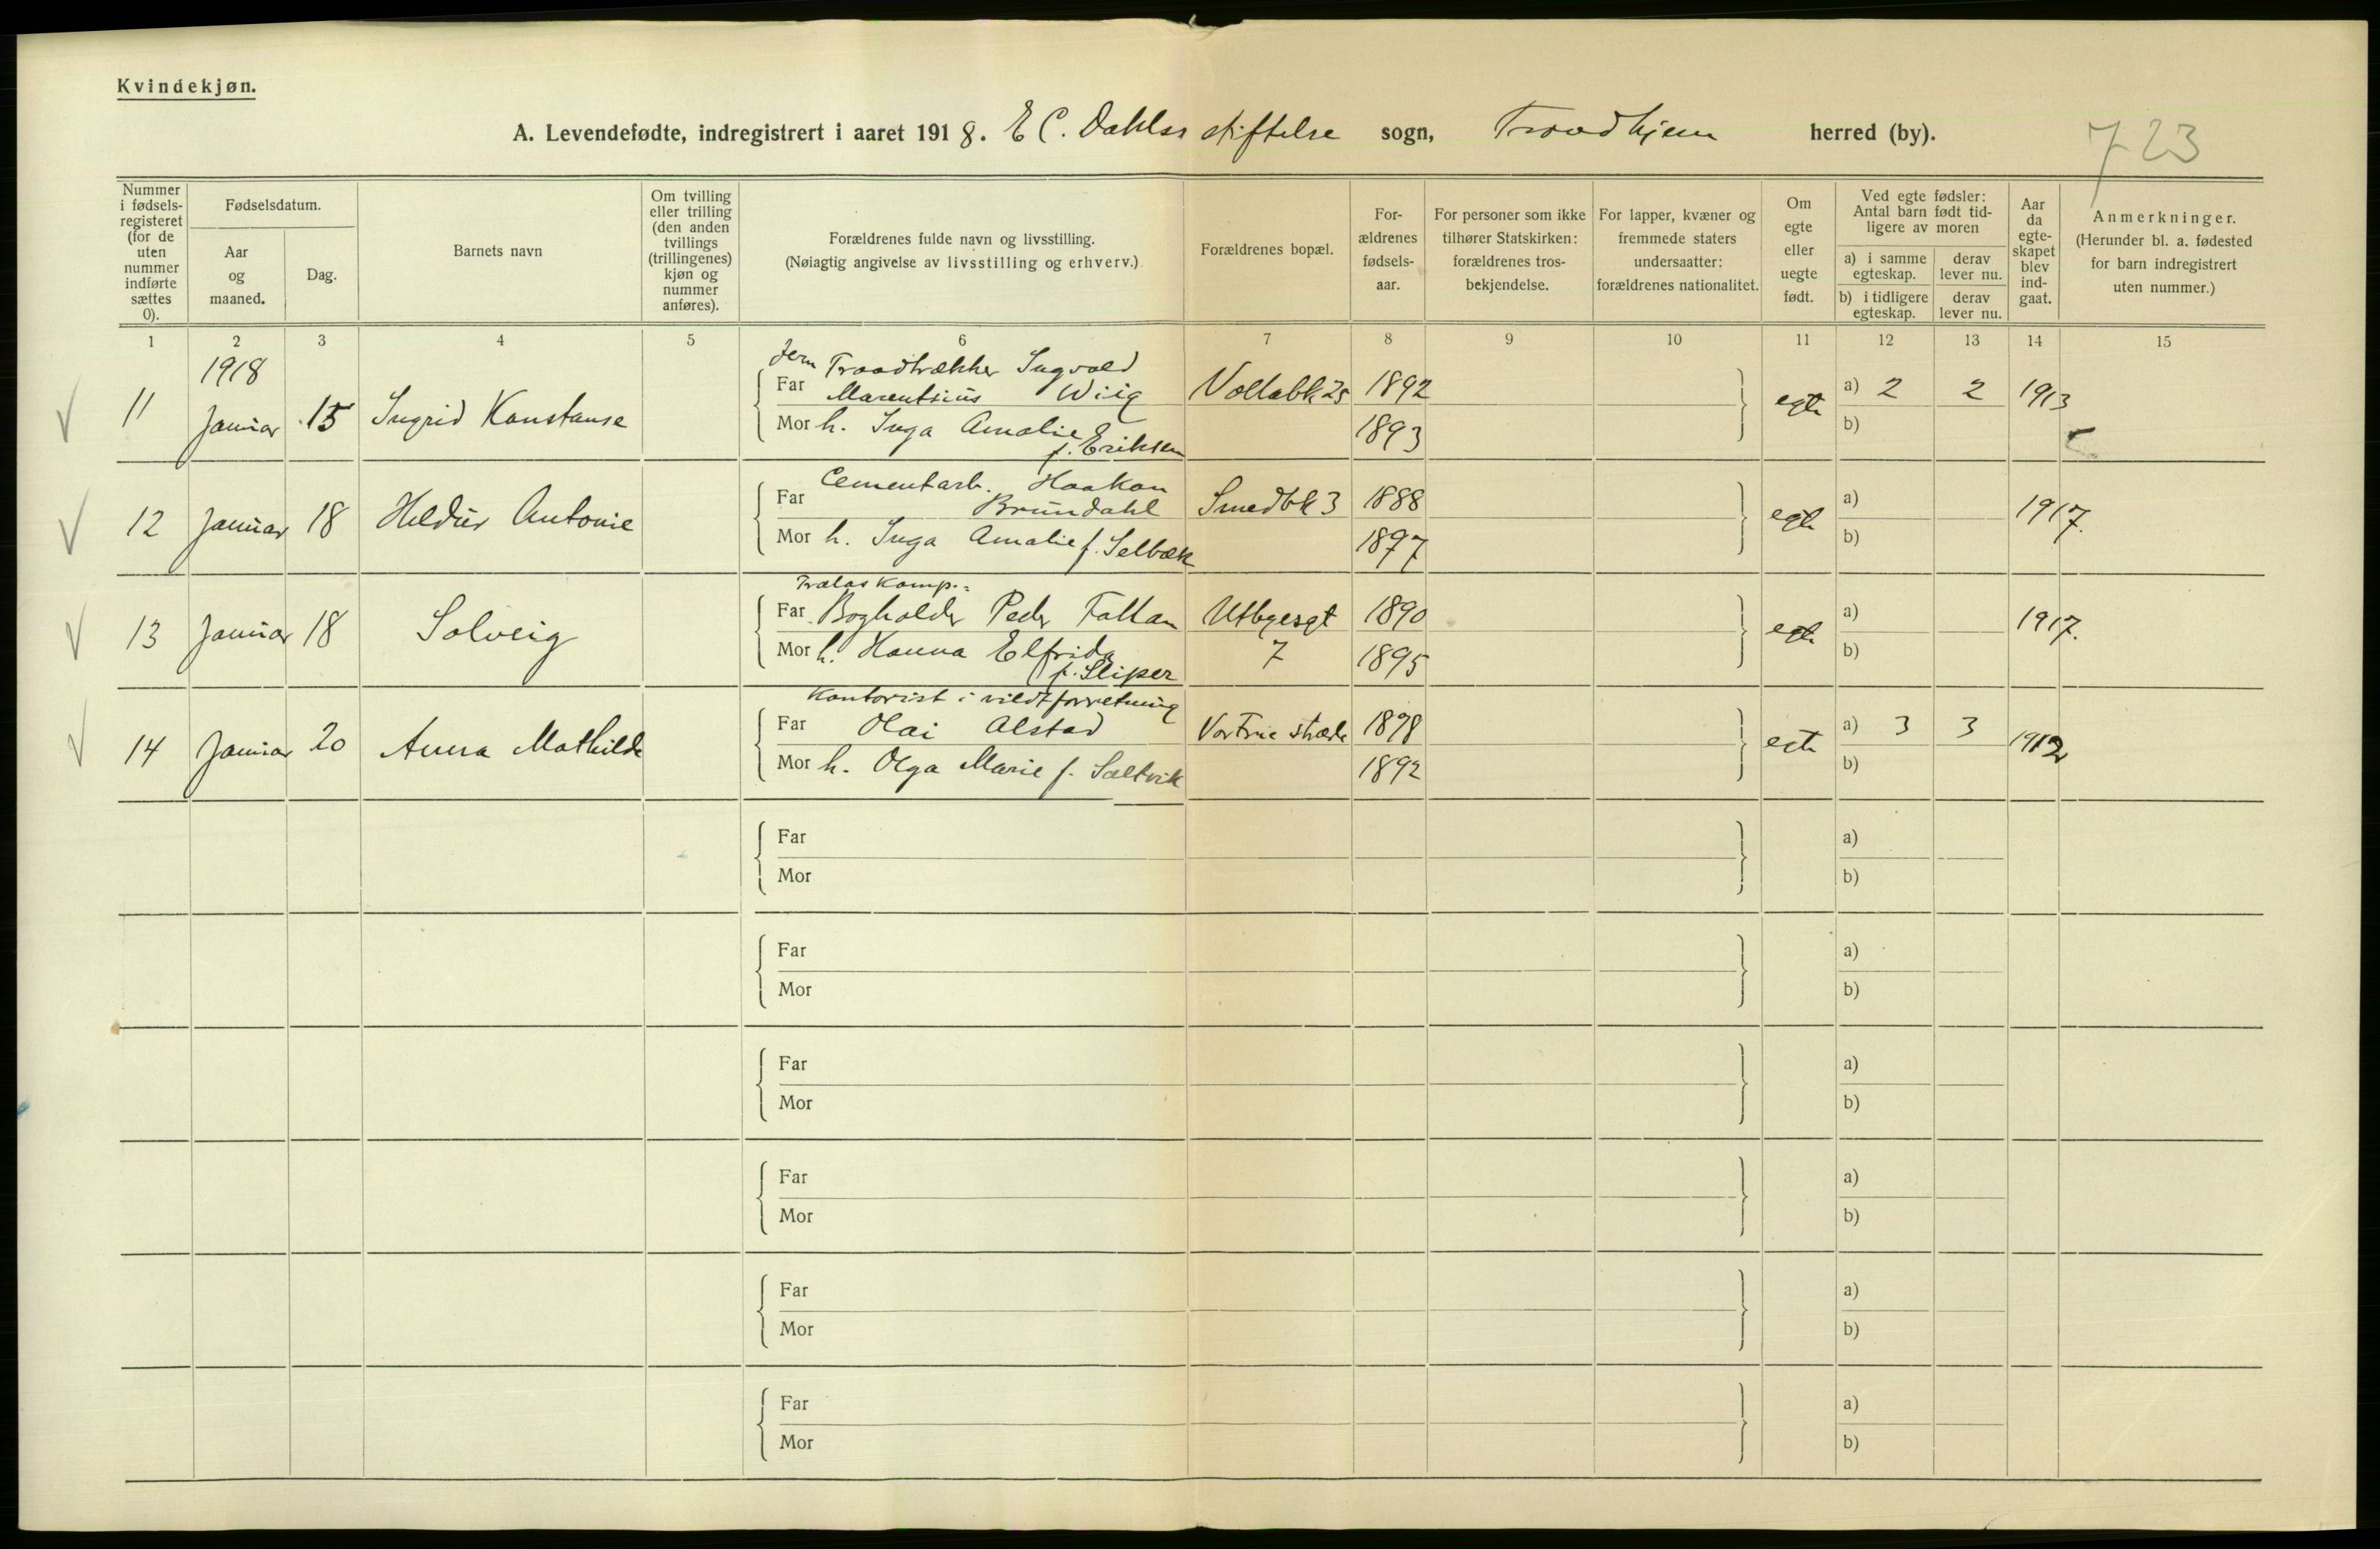 Kvindekjøn.
A. Levendefødte, indregistrert i aaret 1918. E C. Dahlss stiftelse sogn, Trondhjem herred (by).
723
Nummer i fødsels-registeret (for de uten nummer indførte sættes 0).
Fødselsdatum.
Aar og maaned.
Dag.
Barnets navn
Om tvilling eller trilling (den anden tvillings (trillingenes) kjøn og nummer anføres).
Forældrenes fulde navn og livsstilling.
(Nøiagtig angivelse av livsstilling og erhverv.)
Forældrenes bopæl.
For-ældrenes fødsels-aar.
For personer som ikke tilhører Statskirken: forældrenes tros-bekjendelse.
For lapper, kvæner og fremmede staters undersaatter: forældrenes nationalitet.
Om egte eller uegte født.
Ved egte fødsler: Antal barn født tid-ligere av moren
a) i samme egteskap.
derav lever nu.
b) i tidligere egteskap.
derav lever nu.
Aar da egte-skapet blev ind-gaat.
Anmerkninger.
(Herunder bl. a. fødested for barn indregistrert uten nummer.)
1 2 3 4 5 6 7 8 9 10 11 12 13 14 15
1918
Jern Traadtrækker Ingvald
11 Januar 15 Ingrid Konstanse Far Marentsius Wiig Vollabk 25 1892 egte a) 2 2 1913
Mor h. Inga Amalie f. Eriksen 1893 b)
Cementarb. Haakon
12 Januar 18 Heldur Antonie Far Brundahl Smedbk 3 1888 egte a) 1917.
Mor h. Inga Amalie f. Selbæk 1897 b)
Trælas Komp.:
13 Januar 18 Solveig Far Bogholder Peder Fattan Utbygesgt 1890 egte a) 1917.
Mor h. Hanna Elfrida f. Sliper 7 1895 b)
Kontorist i vildtforretning
14 Januar 20 Anna Mathilde Far Olai Alstad Vor Frue stræde 1898 egte a) 3 3 1912
Mor h. Olga Marie f. Saltvik 1892 b)
Far a)
Mor b)
Far a)
Mor b)
Far a)
Mor b)
Far a)
Mor b)
Far a)
Mor b)
Far a)
Mor b)